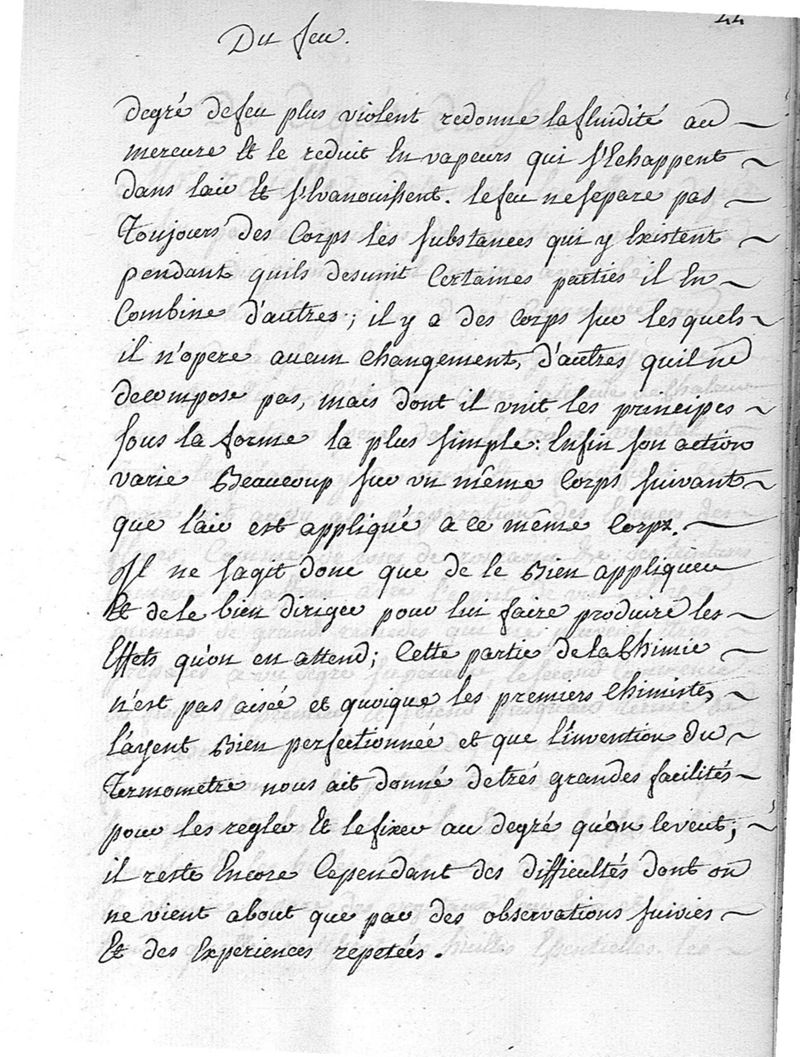 44
Du feu.
degré defeu plus violent redonne lafluidité au
mercure Et le reduit En vapeurs qui s'Echappent
dans l'air Et s'Evanouissent. lefeu nesepare pas
Toujours des Corps les substances qui y Existent
pendant quils desunit Certaines parties il En
Combine d'autres; il y a des Corps sur lesquels
il n'opere aucun changement, d'autres quil ne
decompose pas, mais dont il unit les principes
sous la forme la plus simple: Enfin son action
varie Beaucoup sur un même Corps suivant
que l'air est appliqué a ce meme Corps.
Il ne sagit donc que de le Bien appliquer
Et de le bien diriger pour lui faire produire les
Effets qu'on en attend; Cette partie de la Chimie
n'est pas aisée et quoique les premiers Chimistes
l'ayent Bien perfectionnée et que l'invention du
Termometre nous ait donné detrés grandes facilités
pour les regler Et lefixer au degré qu'on leveut;
il reste Encore Cependant des difficultés dont on
ne vient about que par des observations suivies
Et des Experiences repetées.